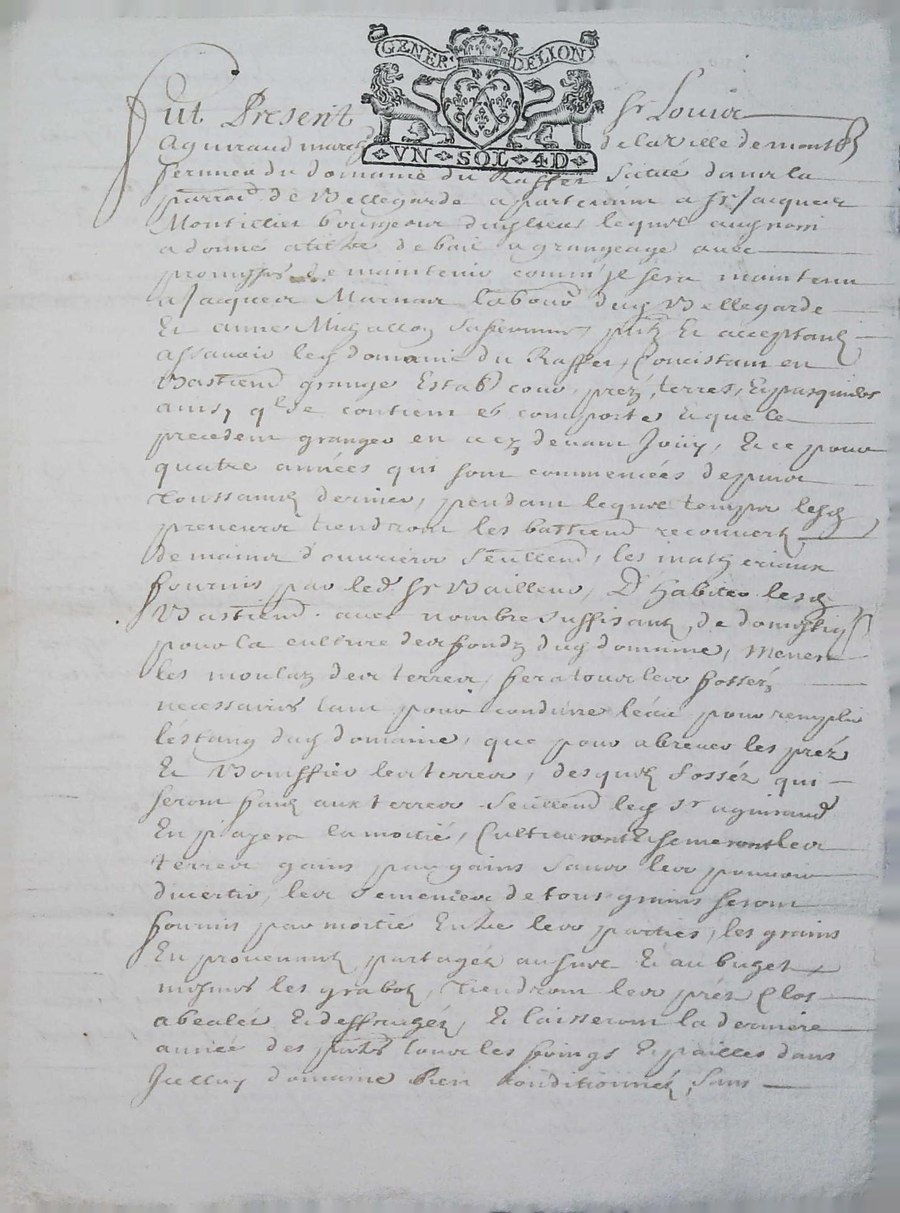 GENER DELION
VN SOL 4D
fut Present Sr Louis
Aguiraud march de la Ville de montb
fermier du domaine du Raffet Situé dans la
parroi de Bellegarde apartenant a Sr Jacques
Montillier bourgeois dud lieu lequel aud nom
a donné a titre de bail a grangeage avec
promesse de maintenir comm' je sera maintenu
a Jacques Marnas labour dud Bellegarde
Et anne Michallon sa femme, pnts Et acceptants
assavoir led domaine du Raffet, Concistant en
Bastiend grange Estab cour, prez, terres, Et pasquiers
ainsy qlse contient et comporte Et que le
precedent granger en a cy devant Jouy, Et ce pour
quatre années qui sont commencées depuis
Toussaints dernier, pendant lequel temps lesd
preneurs tiendront les bastiend recouverts
de mains d'ouvriers seullend, les mathereaux
fournis par led Sr Bailleur, D'habiter lesd
Bastiend avec nombre suffisant, de domestiqs
pour la culture des fonds dud domaine, Mener
les moulez des terres, fera tous les fossés
necessaires tant pour conduire l'eau pour remplir
l'estang dud domaine, que pour abrever les prés
Et Boniffier les terres, desquels fossés qui
seront faits aux terres seullend led Sr aguiraud
En payera la moitié, Cultiveront Et semeront les
terres gains par gains sans les pouvoir
divertir, les semences de tous grains seront
fournis par moitié Entre les parties, les grains
En provenant partagés au suel Et au buget
mesmes les grabots, tiendront les prés Clos
abealés Et deffrugés, Et laisseront la derniere
année des pnts tous les foings Et pailles dans
Jcelluy domaine bien Conditionnés, sans